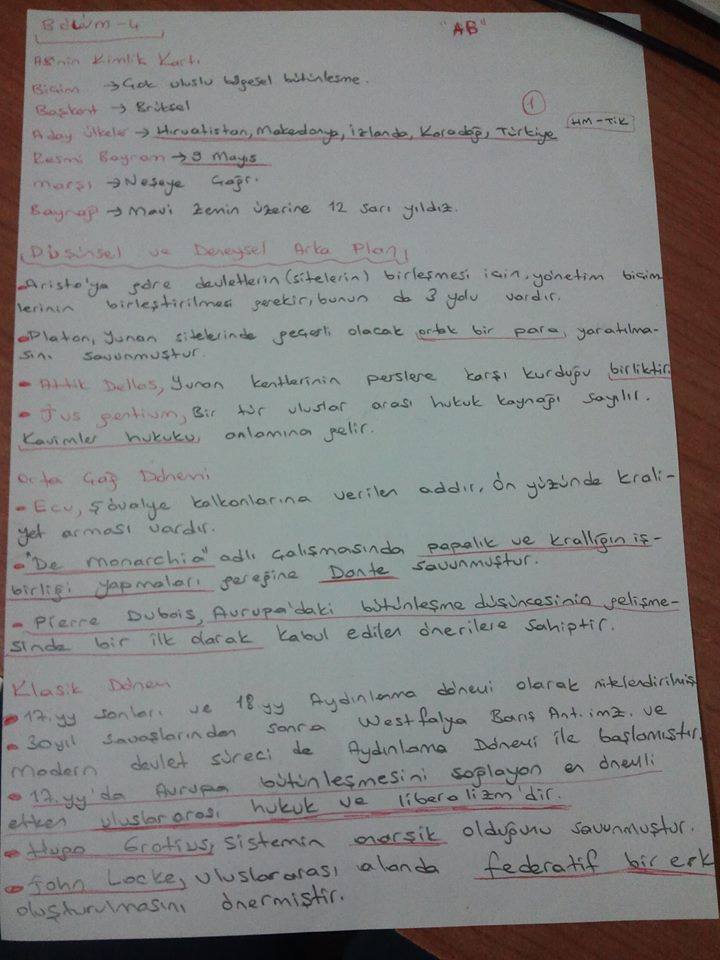 Bölüm-4
"AB"
AB'nin Kimlik Kartı
Biçim → Çok uluslu bölgesel bütünleşme.
Başkent → Brüksel
①
Aday ülkeler → Hırvatistan, Makedonya, İzlanda, Karadağ, Türkiye
HM-TİK
Resmi Bayram → 9 Mayıs
Marşı → Neşeye Çağrı.
Bayrağı → Mavi zemin üzerine 12 sarı yıldız.
Düşünsel ve Deneysel Arka Planı
• Aristo'ya göre devletlerin (sitelerin) birleşmesi için, yönetim biçim-
lerinin birleştirilmesi gerekir, bunun da 3 yolu vardır.
• Platon, Yunan sitelerinde geçerli olacak ortak bir para, yaratılma-
sını savunmuştur.
• Attik Dellos, Yunan kentlerinin perslere karşı kurduğu birliktir.
• Jus gentium, Bir tür uluslar arası hukuk kaynağı sayılır.
Kavimler hukuku, anlamına gelir.
Orta Çağ Dönemi
• Ecu, Şövalye kalkanlarına verilen addır, Ön yüzünde krali-
yet arması vardır.
• "De monarchia" adlı çalışmasında papalık ve krallığın iş-
birliği yapmaları gereğine Dante savunmuştur.
• Pierre Dubois, Avrupa'daki bütünleşme düşüncesinin gelişme-
sinde bir ilk olarak kabul edilen önerilere sahiptir.
Klasik Dönem
• 17.yy sonları ve 18 yy Aydınlanma dönemi olarak nitelendirilmiş
• 30 yıl savaşlarından sonra Westfalya Barış Ant. imz. ve
modern devlet süreci de Aydınlama Dönemi ile başlamıştır.
• 17.yy'da Avrupa bütünleşmesini sağlayan en önemli
etken uluslararası hukuk ve liberalizm'dir.
• Hugo Grotius, sistemin anarşik olduğunu savunmuştur.
• John Locke, uluslararası alanda federatif bir erk
oluşturulmasını önermiştir.